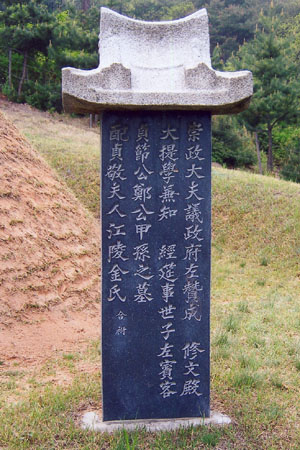 崇政大夫議政府左贊成 修文殿
大提學兼知 經筵事世子左賓客
貞節公鄭公甲孫之墓
配貞敬夫人江陵金氏 合祔